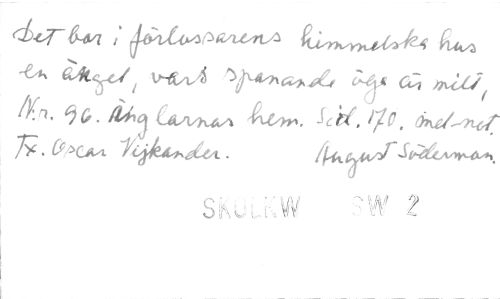 Det bor i förlossarens himmelska hus
en ängel, vars spanande öga är milt,
N:r. 96. Änglarnas hem. Sid. 170. mel-not
Tx. Oscar Wijkander. August Söderman.
SKOLKW SW 2